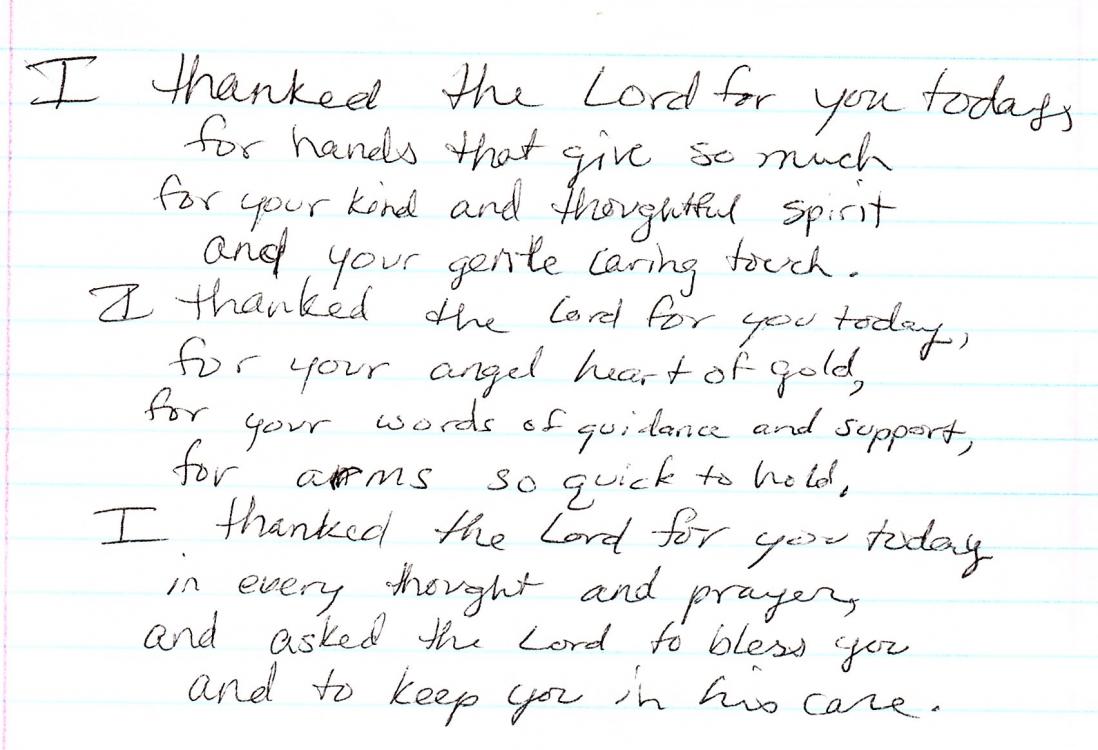 I thanked the Lord for you today,
for hands that give so much
for your kind and thoughtful spirit
and your gentle caring touch.
I thanked the Lord for you today,
for your angel heart of gold,
for your words of guidance and support,
for arms so quick to hold.
I thanked the Lord for you today
in every thought and prayer,
and asked the Lord to bless you
and to keep you in his care.